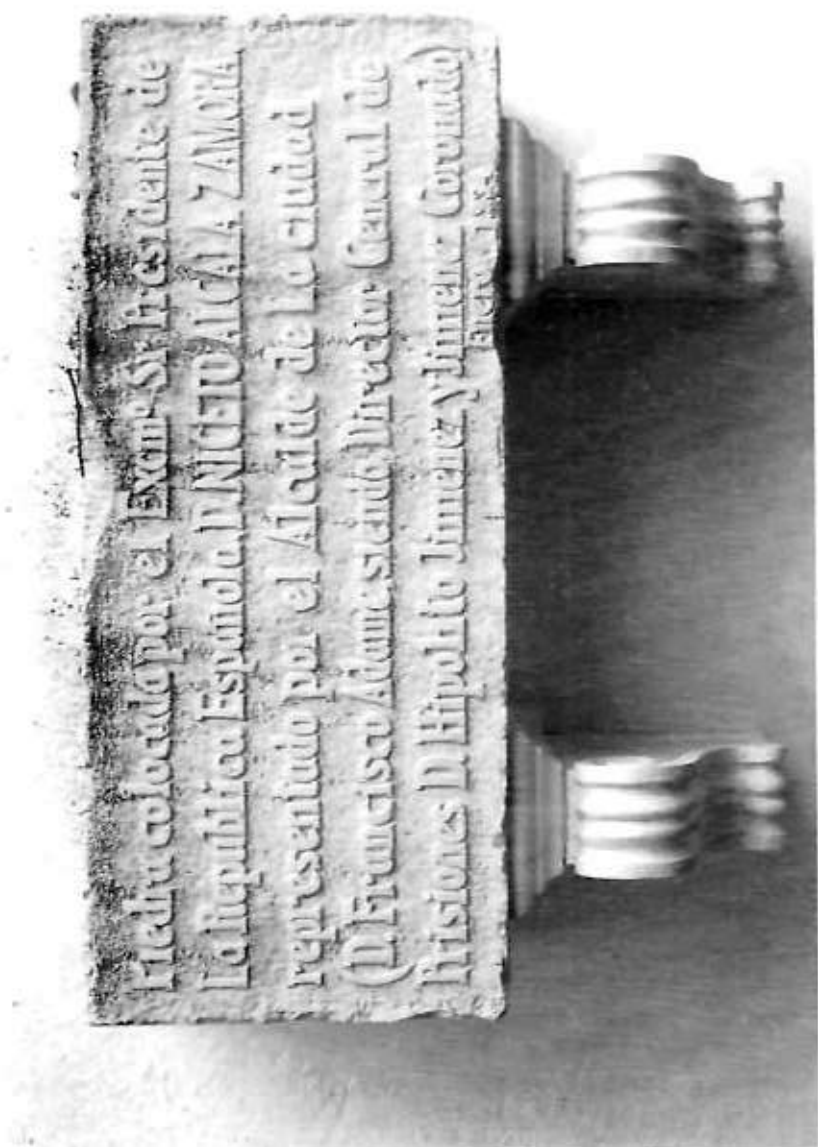 Piedra colocada por el Excmº Sr Presidente de
La Republica Española D. NICETO ALCALA ZAMORA
representado por el Alcalde de La ciudad
(D. Francisco Adame siendo Director General de
Prisiones D. Hipolito Jimenez y Jimenez Coronado)
Enero